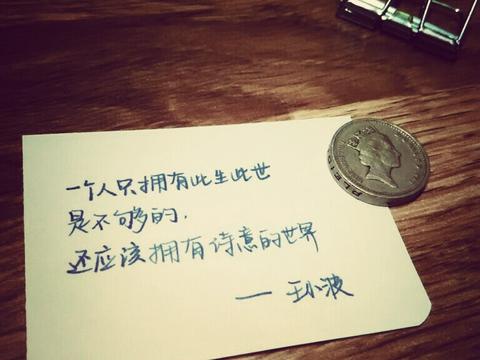 一个人只拥有此生此世
是不够的,
还应该拥有诗意的世界
— 王小波